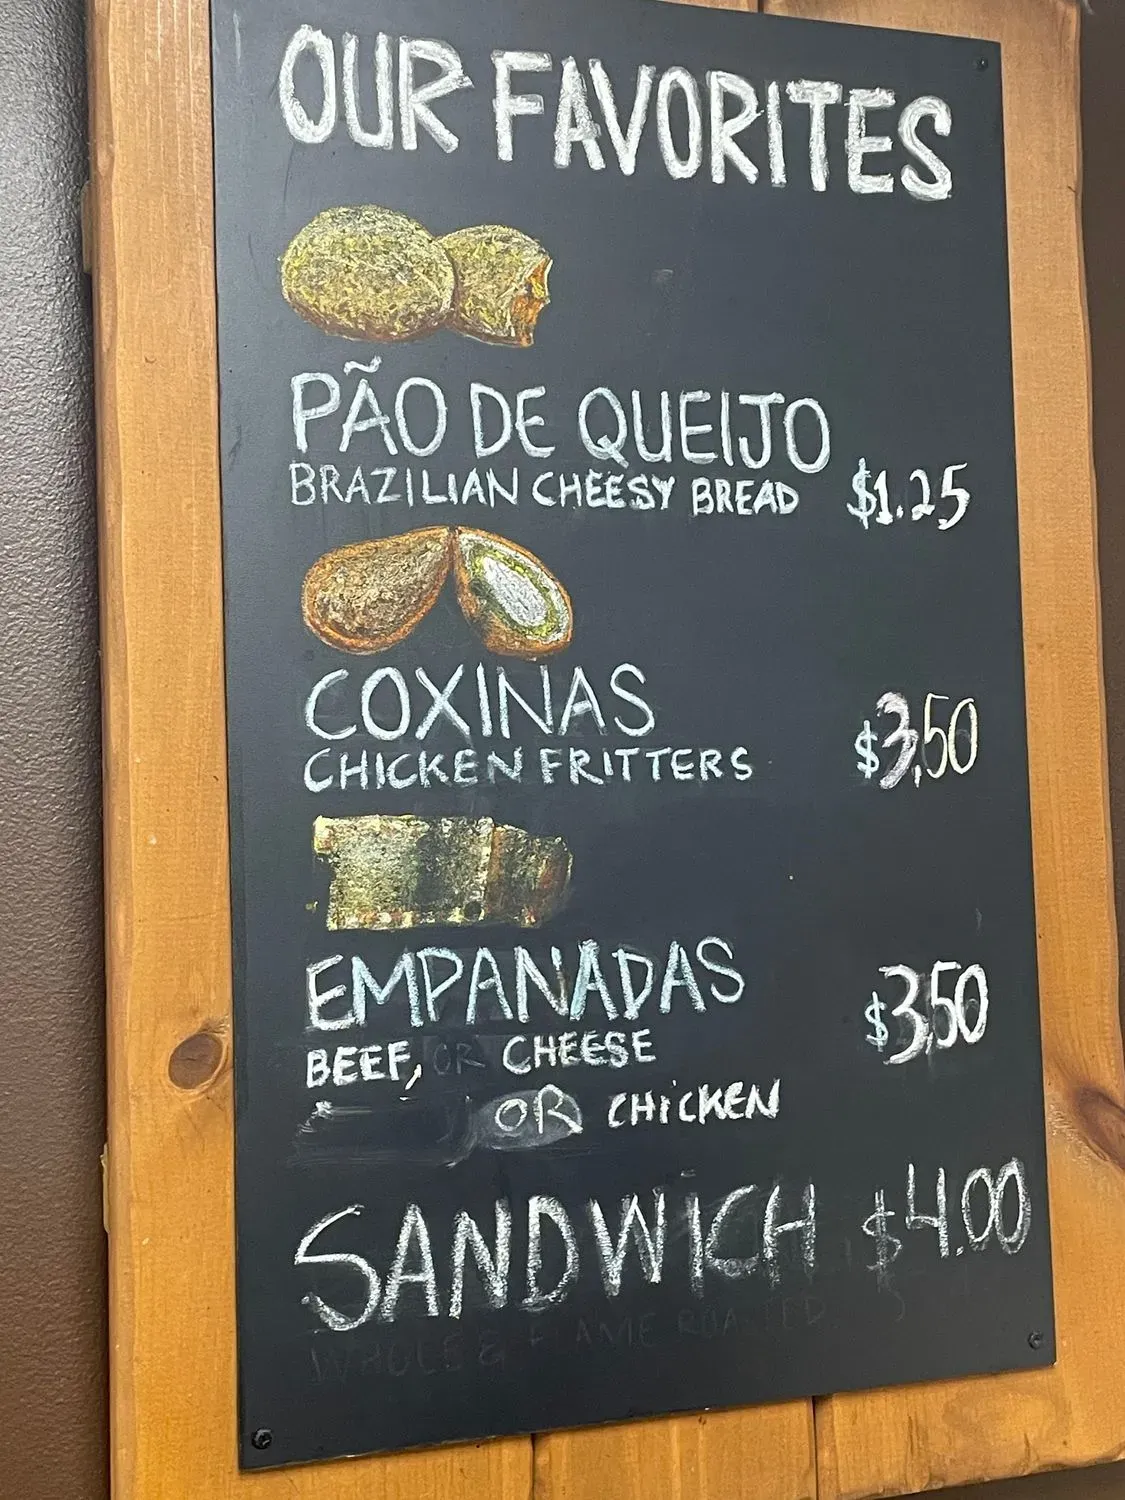 OUR FAVORITES
PÃO DE QUEIJO
BRAZILIAN CHEESY BREAD $1.25
COXINAS
CHICKEN FRITTERS $3,50
EMPANADAS $3.50
BEEF, OR CHEESE
OR CHICKEN
SANDWICH $4.00
WHOLE & FLAME ROASTED